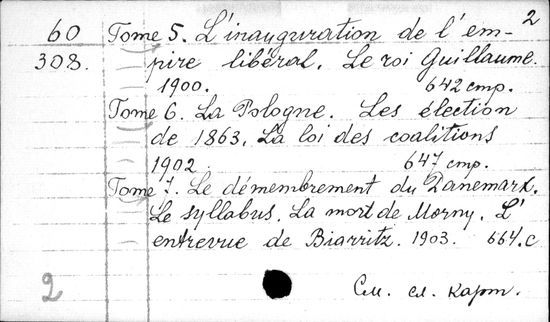 2
60 Tome 5. L'inauguration de l'em-
308. pire libéral. Le roi Guillaume.
1900. 642 стр.
Tome 6. La Pologne. Les élection
de 1863. La loi des coalitions
1902. 647 стр.
Tome 7. Le démembrement du Danemark.
Le syllabus. La mort de Morny. L'
entrevue de Biarritz. 1903. 664.c
2 См. сл. карт.